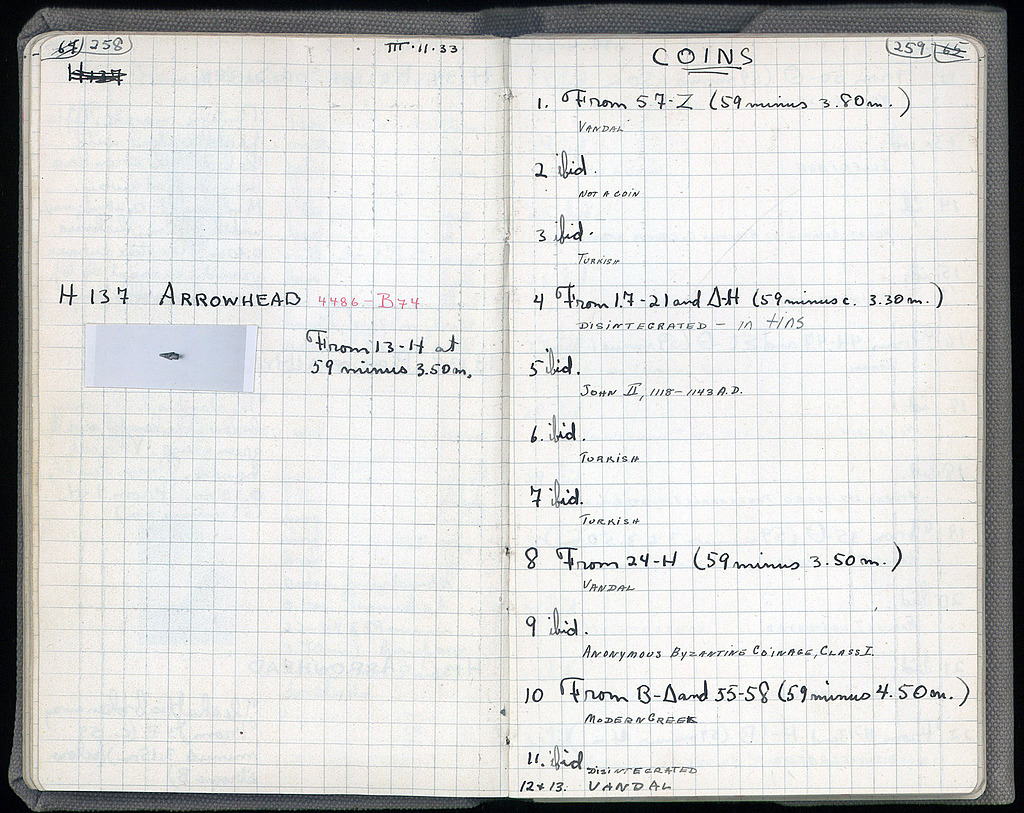 258
III·11·33
H137
H 137 ARROWHEAD 4486-B74
From 13-H at
59 minus 3.50m.
COINS
259 65
1. From 57-Z (59 minus 3.80m.)
VANDAL
2 ibid.
NOT A COIN
3 ibid.
TURKISH
4 From 17-21 and Δ-H (59 minus c. 3.30m.)
DISINTEGRATED - in tins
5 ibid.
JOHN II, 1118-1143 A.D.
6. ibid.
TURKISH
7 ibid.
TURKISH
8 From 24-H (59 minus 3.50m.)
VANDAL
9 ibid.
ANONYMOUS BYZANTINE COINAGE, CLASS I.
10 From B-Δ and 55-58 (59 minus 4.50m.)
MODERN GREEK
11. ibid
DISINTEGRATED
12+13. VANDAL